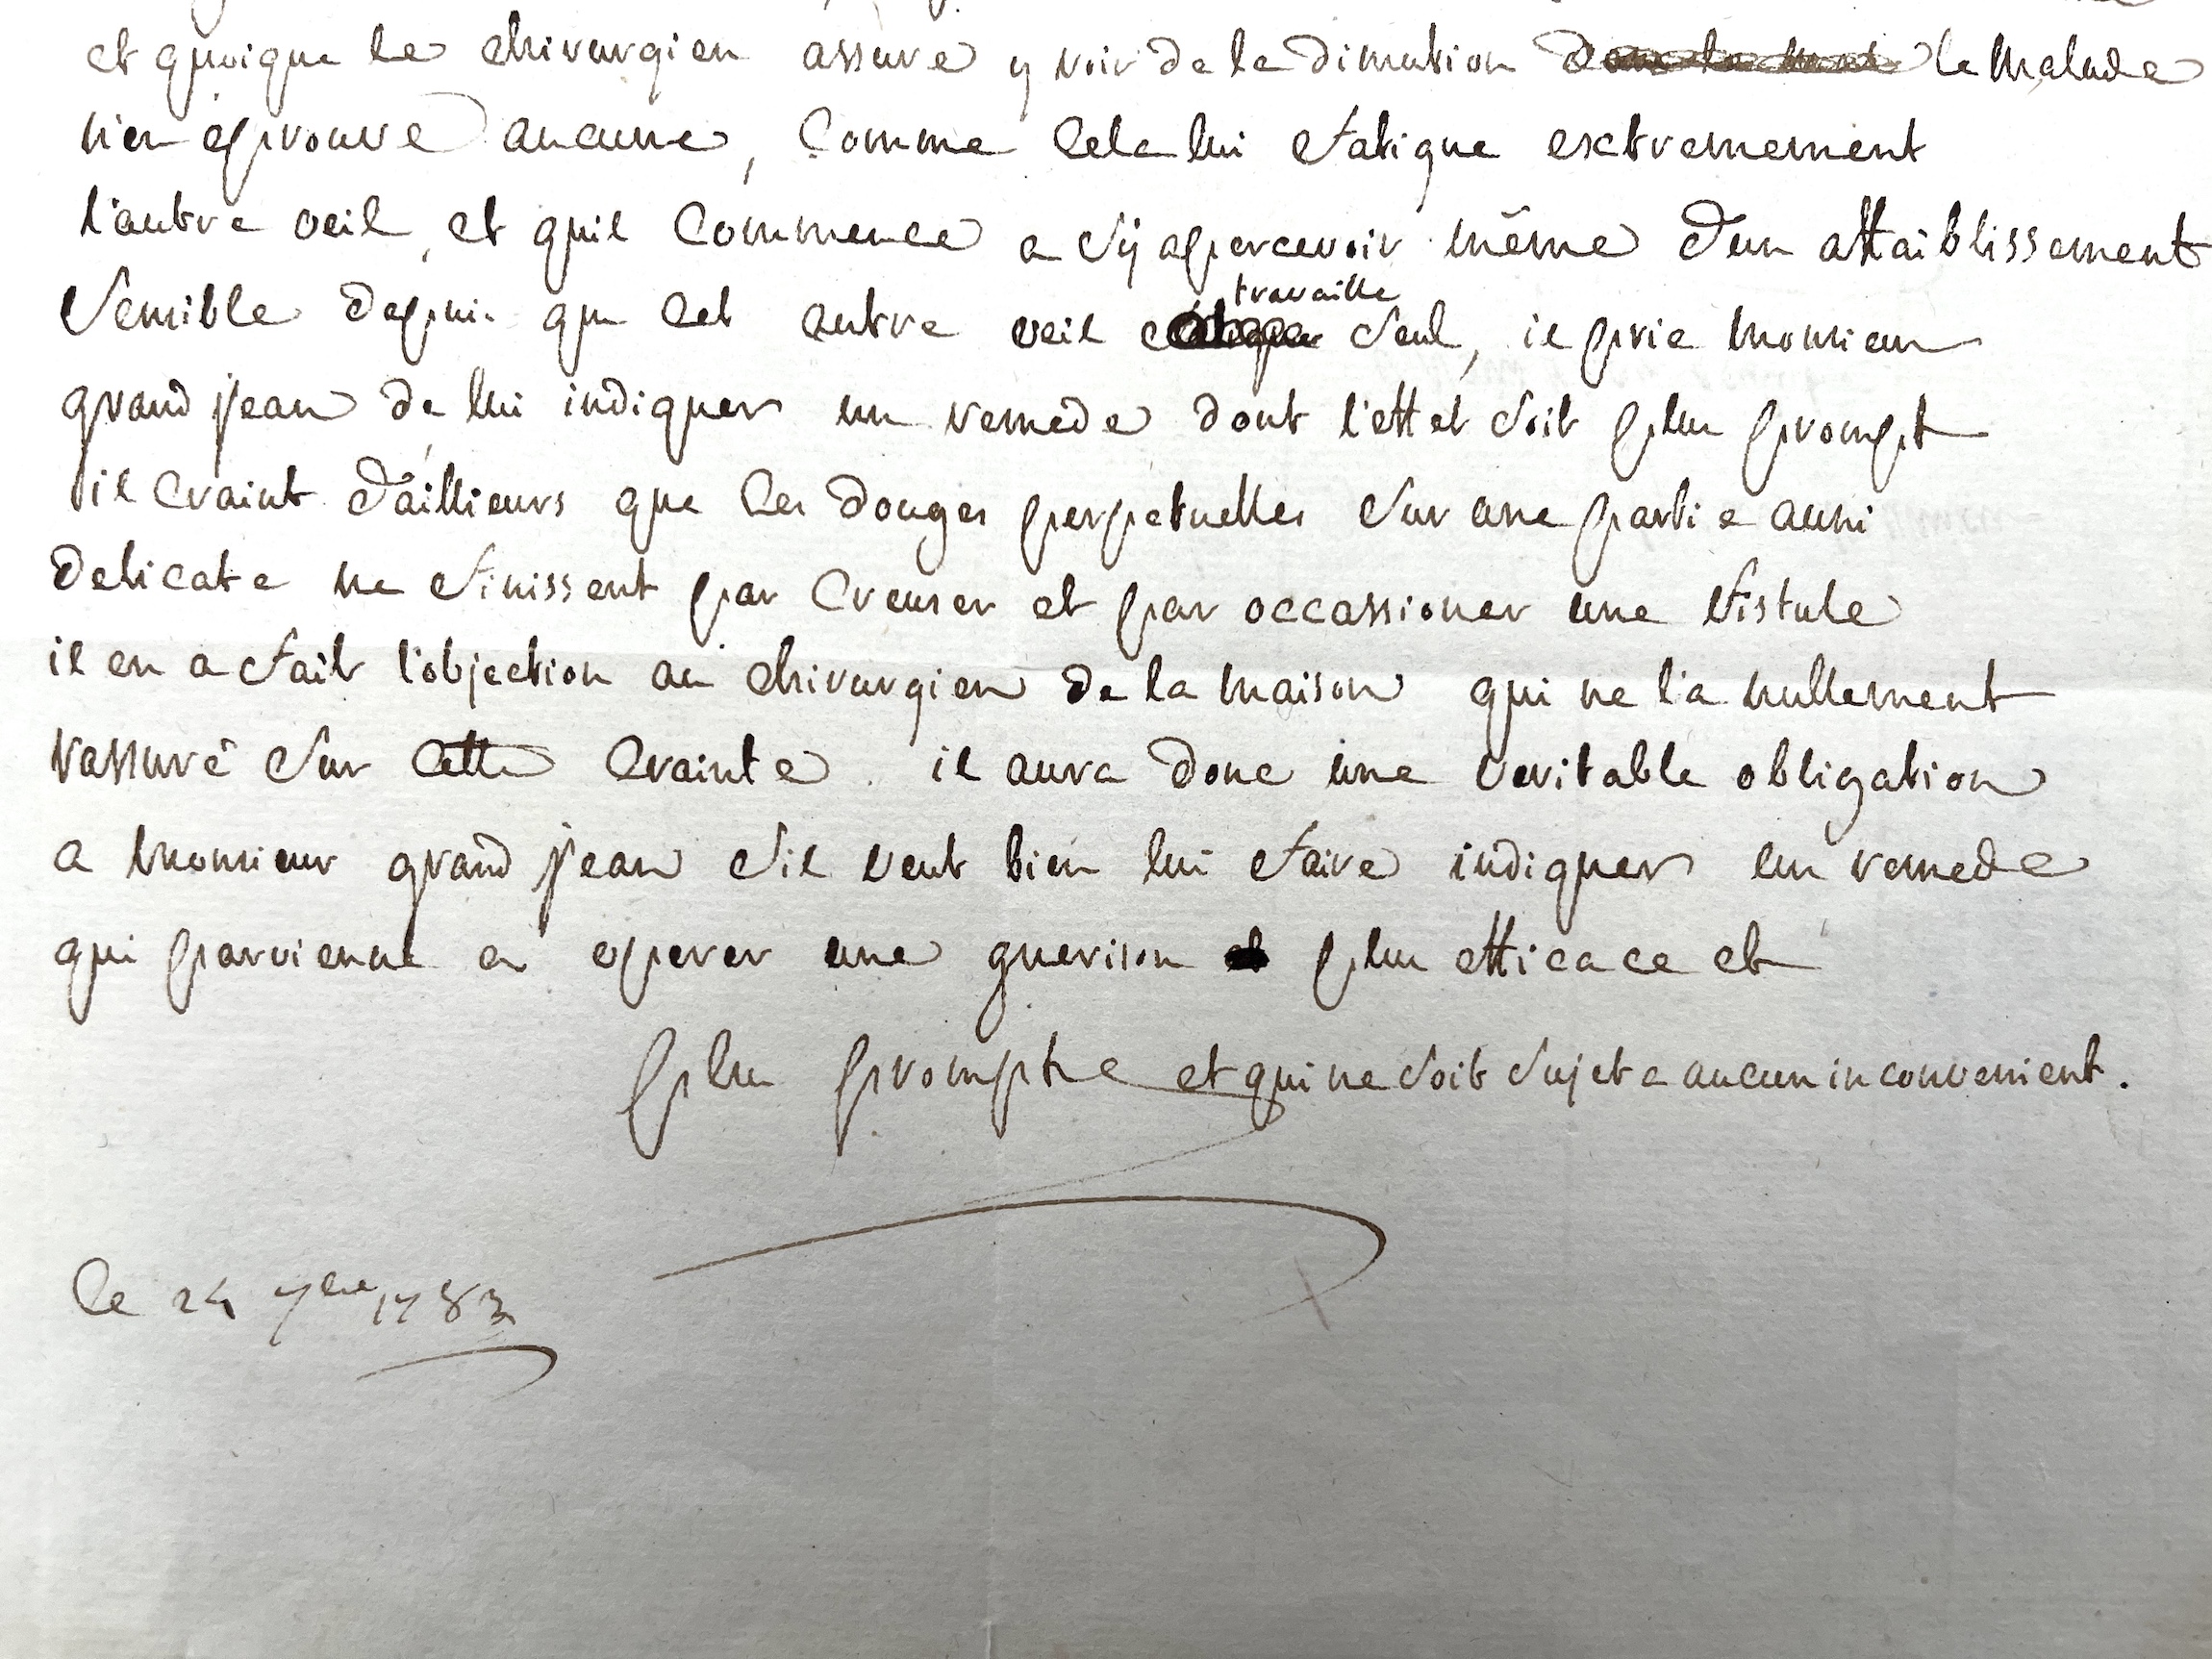 et quoique le chirurgien assure y voir de la dimution le malade
n'en eprouve aucune, Comme Cela lui fatigue exctremement
l'autre oeil, et quil Commence a s'y apercevoir même d'un affaiblissement
sensible depuis que Cet autre oeil travaille seul, il prie monsieur
grand jean de lui indiquer un remede dont l'effet soit plus prompt
il Craint d'aillieurs que les douges perpetuelles sur une partie aussi
delicate ne finissent par Creuser et par occassioner une fistule
il en a fait l'objection au chirurgien de la maison qui ne l'a nullement
rassuré sur Cette Crainte. il aura donc une veritable obligation
a monsieur grand jean s'il veut bien lui faire indiquer un remede
qui parvienne a operer une guerison plus efficace et
plus prompte et qui ne soit sujet a aucun inconvenient.
le 24 7bre 1783